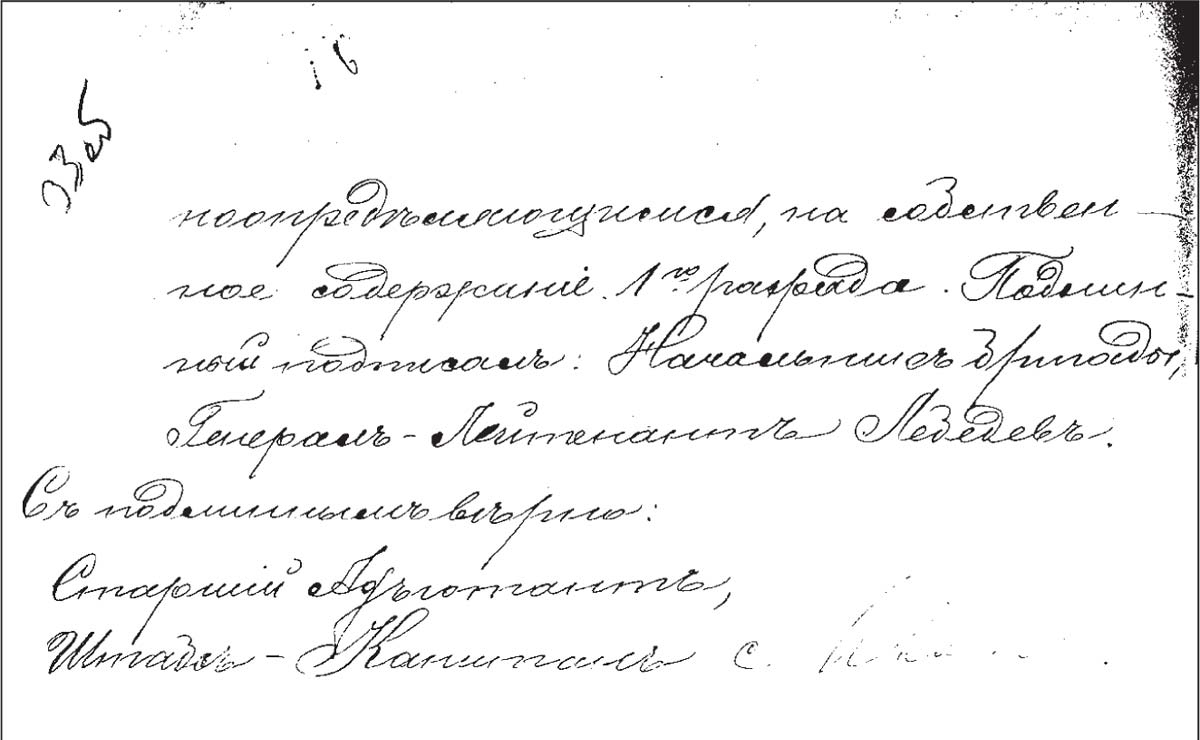 33 об
ноопредѣляющимися, на собствен-
ное содержаніе 1го разряда. Подлин-
ный подписалъ: Начальникъ бригады,
Генералъ-Лейтенантъ Лебедевъ.
Съ подлиннымъ вѣрно:
Старшій Адъютантъ,
Штабсъ-Капитанъ